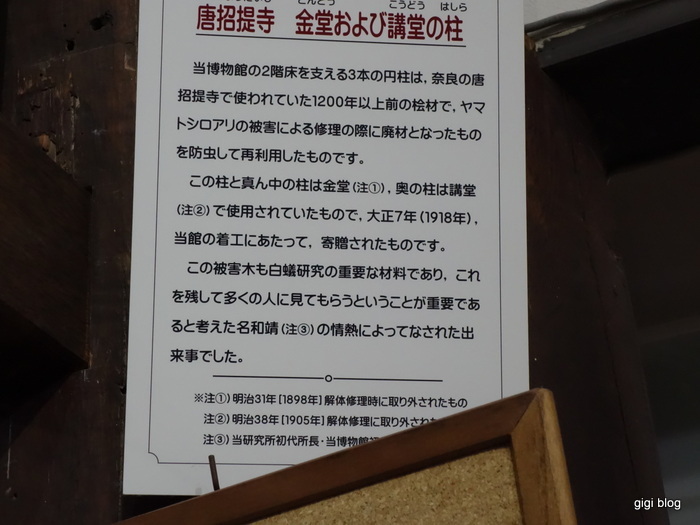 こんどう
こうどう はしら
唐招提寺 金堂および講堂の柱
当博物館の2階床を支える3本の円柱は,奈良の唐
招提寺で使われていた1200年以上前の桧材で,ヤマ
トシロアリの被害による修理の際に廃材となったもの
を防虫して再利用したものです。
この柱と真ん中の柱は金堂(注①),奥の柱は講堂
(注②)で使用されていたもので,大正7年(1918年),
当館の着工にあたって,寄贈されたものです。
この被害木も白蟻研究の重要な材料であり,これ
を残して多くの人に見てもらうということが重要であ
ると考えた名和靖(注③)の情熱によってなされた出
来事でした。
※注①)明治31年[1898年]解体修理時に取り外されたもの
注②)明治38年[1905年]解体修理に取り外され
注③)当研究所初代所長・当博物館
gigi blog